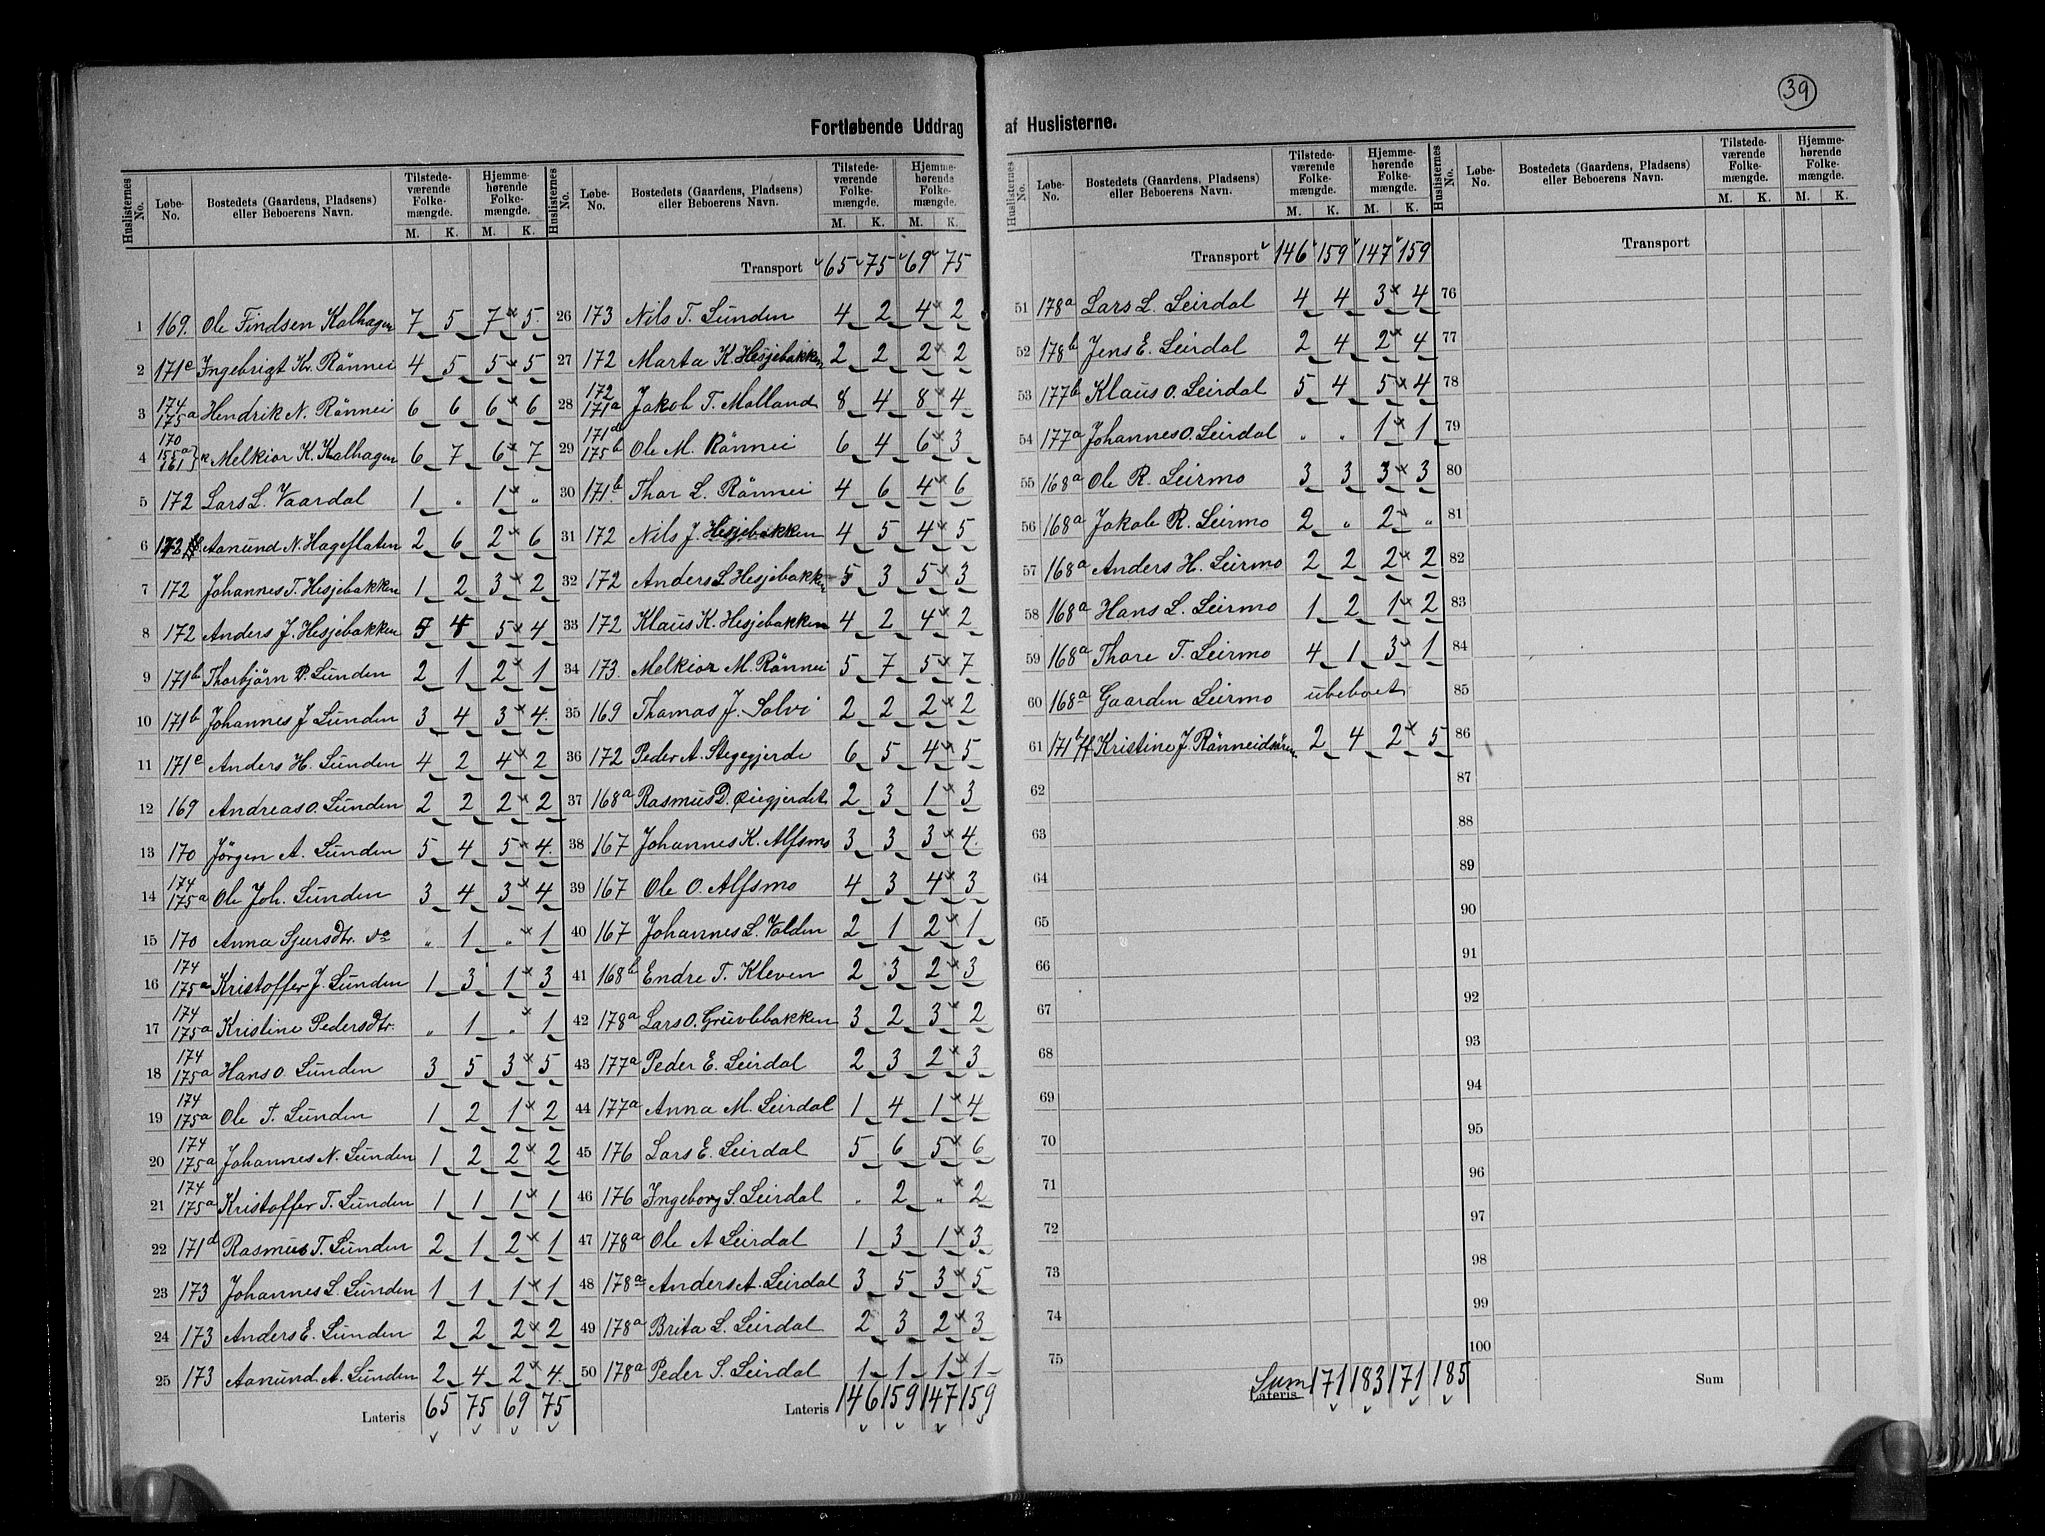 39
Fortløbende Uddrag af Huslisterne.
Huslisternes No. Løbe-No. Bostedets (Gaardens, Pladsens) eller Beboerens Navn. Tilstedeværende Folkemængde. M. K. Hjemmehørende Folkemængde. M. K.
1 169. Ole Findsen Kalhagen 7 5 7 × 5
2 171c Ingebrigt Kr. Rönnei 4 5 5 × 5
3 174 175a Hendrik N. Rönnei 6 6 6 × 6
4 170 155a 161 Melkior K. Kalhagen 6 7 6 × 7
5 172 Lars L. Vaardal 1 " 1 × "
6 172 Aamund N. Hageflaten 2 6 2 × 6
7 172 Johannes T. Hesjebakken 1 2 3 × 2
8 172 Anders J. Hesjebakken 5 4 5 × 4
9 171b Thorbjörn P. Sunden 2 1 2 × 1
10 171b Johannes J Sunden 3 4 3 × 4.
11 171e Anders H. Sunden 4 2 4 × 2
12 169 Andreas O. Sunden 2 2 2 × 2
13 170 Jörgen A. Sunden 5 4 5 × 4.
14 174 175a Ole Joh. Sunden 3 4 3 × 4
15 170 Anna Sjursdtr. do " 1 " × 1
16 174 175a Kristoffer J. Sunden 1 3 1 × 3
17 174 175a Kristine Pedersdtr. " 1 " × 1
18 174 175a Hans O. Sunden 3 5 3 × 5
19 174 175a Ole T. Sunden 1 2 1 × 2
20 174 175a Johannes N. Sunden 1 2 2 × 2
21 174 175a Kristoffer T. Sunden 1 1 1 × 1
22 171d Rasmus T. Sunden 2 1 2 × 1
23 173 Johannes L. Sunden 1 1 1 × 1
24 173 Anders E. Sunden 2 2 2 × 2
25 173 Aamund A. Sunden 2 4 2 × 4.
Lateris 65 75 69 75
Huslisternes No. Løbe-No. Bostedets (Gaardens, Pladsens) eller Beboerens Navn. Tilstedeværende Folkemængde. M. K. Hjemmehørende Folkemængde. M. K.
Transport 65 75 69 75
26 173 Nils T. Sunden 4 2 4 × 2
27 172 Marta K. Hesjebakken 2 2 2 × 2
28 172 171a Jakob T. Molland 8 4 8 × 4
29 171d 175b Ole M. Rönnei 6 4 6 × 3
30 171b Thor L. Rönnei 4 6 4 × 6
31 172 Nils J. Hesjebakken 4 5 4 × 5
32 172 Anders L Hesjebakken 5 3 5 × 3
33 172 Klaus K. Hesjebakken 4 2 4 × 2
34 173. Melkior M. Rönnei 5 7 5 × 7
35 169 Thomas J. Solvi 2 2 2 × 2
36 172 Peder A. Stegegjerde 6 5 4 × 5
37 168a Rasmus D. Øiegjerdet 2 3 1 × 3
38 167 Johannes K. Alfsmo 3 3 3 × 4.
39 167 Ole O. Alfsmo 4 3 4 × 3
40 167 Johannes L. Volden 2 1 2 × 1
41 168b Endre T. Kleven 2 3 2 × 3
42 178a Lars O. Gruvlebakken 3 2 3 × 2
43 177a Peder E. Leirdal 2 3 2 × 3
44 177a Anna M. Leirdal 1 4 1 × 4
45 176 Lars E. Leirdal 5 6 5 × 6
46 176 Ingeborg S. Leirdal " 2 " × 2
47 178a Ole A Leirdal 1 3 1 × 3
48 178a Anders A. Leirdal 3 5 3 × 5
49 178a Brita L. Leirdal 2 3 2 × 3
50 178a Peder S. Leirdal 1 1 1 × 1
Lateris 146 159 147 159
Huslisternes No. Løbe-No. Bostedets (Gaardens, Pladsens) eller Beboerens Navn. Tilstedeværende Folkemængde. M. K. Hjemmehørende Folkemængde. M. K.
Transport 146 159 147 159
51 178a Lars L. Leirdal 4 4 3 × 4
52 178b Jens E. Leirdal 2 4 2 × 4
53 177b Klaus O. Leirdal 5 4 5 × 4
54 177a Johannes O. Leirdal " " 1 × 1
55 168a Ole R. Leirmo 3 3 3 × 3
56 168a Jakob R. Leirmo 2 " 2 × "
57 168a Anders H. Leirmo 2 2 2 × 2
58 168a Hans L. Leirmo 1 2 1 × 2
59 168a Thore T. Leirmo 4 1 3 × 1
60 168a Gaarden Leirmo ubeboet
61 171b ff. Kristine J. Rönneidsören 2 4 2 × 5
62
63
64
65
66
67
68
69
70
71
72
73
74
75
Sum Lateris 171 183 171 185
Huslisternes No. Løbe-No. Bostedets (Gaardens, Pladsens) eller Beboerens Navn. Tilstedeværende Folkemængde. M. K. Hjemmehørende Folkemængde. M. K.
Transport
76
77
78
79
80
81
82
83
84
85
86
87
88
89
90
91
92
93
94
95
96
97
98
99
100
Sum